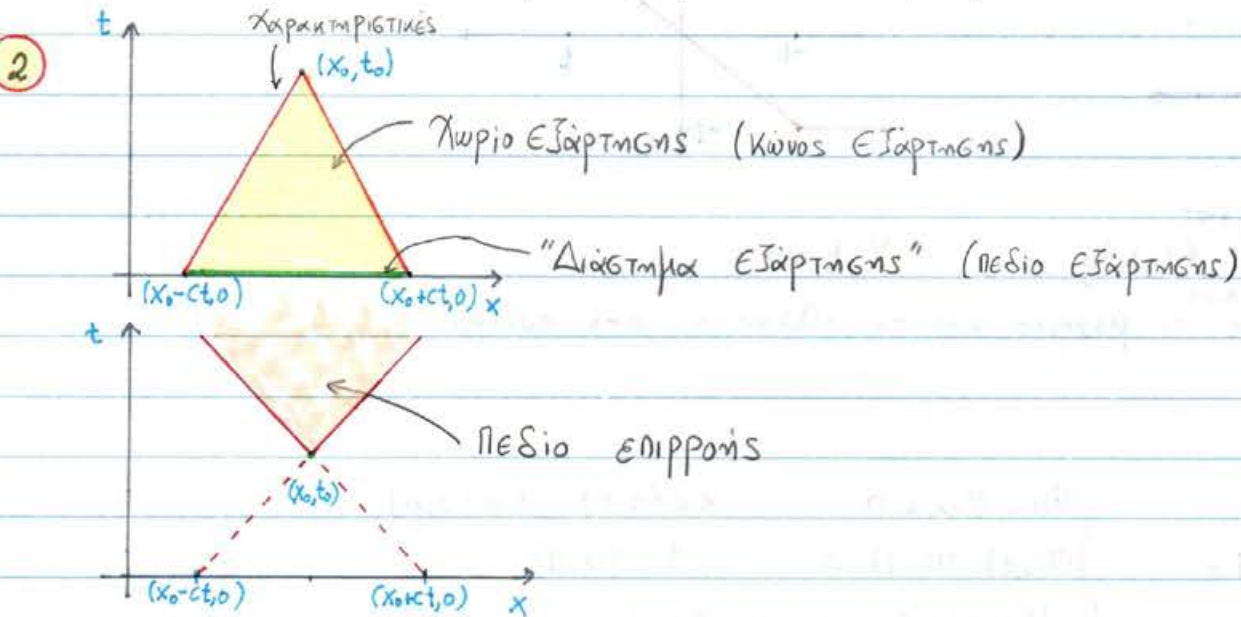 t
Χαρακτηριστικές
2
(x₀, t₀)
Χωρίο εξάρτησης (κώνος εξάρτησης)
"Διάστημα εξάρτησης" (πεδίο εξάρτησης)
(x₀-ct,0)
(x₀+ct,0) x
t
Πεδίο επιρροής
(x₀,t₀)
(x₀-ct,0)
(x₀+ct,0)
x